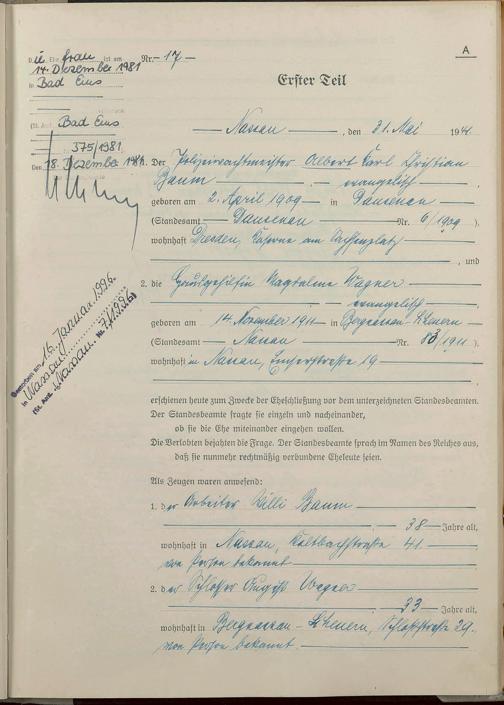 A
Die Ehefrau ist am
14. Dezember 1981
in Bad Ems
(St. Amt Bad Ems
375/1981
Den 18. Dezember
Nr. 17
Erster Teil
Nassau, den 31. Mai 1941
1. Der Polizeiwachtmeister Albert Karl Christian
Baum
evangelisch
geboren am 2. April 1909 in Dausenau
(Standesamt Dausenau Nr. 6/1909)
wohnhaft Dresden, Kaserne am Sachsenplatz
, und
2. die Hausgehilfin Magdalene Wagner
evangelisch
geboren am 14. November 1911 in Bergnassau-Scheuern
(Standesamt Nassau Nr. 88/1911)
wohnhaft in Nassau, Emserstraße 19
Gestorben am 16. Januar 1996
in Nassau
(St. Amt Nassau. Nr. 7/1996)
erschienen heute zum Zwecke der Eheschließung vor dem unterzeichneten Standesbeamten.
Der Standesbeamte fragte sie einzeln und nacheinander,
ob sie die Ehe miteinander eingehen wollen.
Die Verlobten bejahten die Frage. Der Standesbeamte sprach im Namen des Reiches aus,
daß sie nunmehr rechtmäßig verbundene Eheleute seien.
Als Zeugen waren anwesend:
1. der Arbeiter Willi Baum
38 Jahre alt,
wohnhaft in Nassau, Kaltbachstraße 41
von Person bekannt
2. der Schlosser August Wagner
33 Jahre alt,
wohnhaft in Bergnassau-Scheuern, Schloßstraße 29.
von Person bekannt.